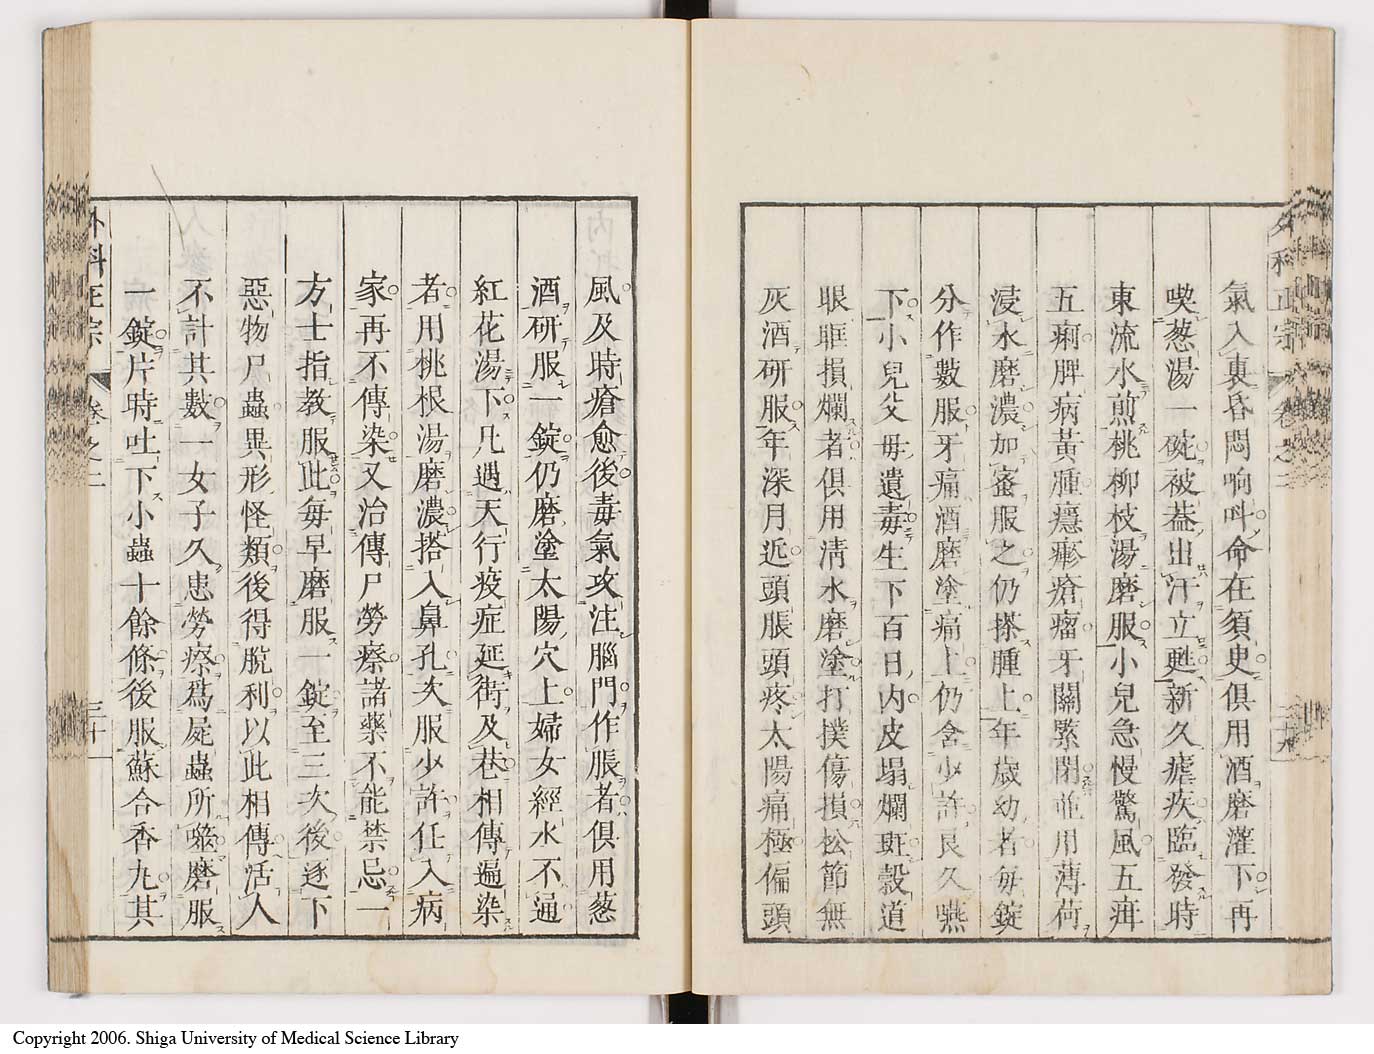 氣入裏昏悶响呌命在須臾俱用酒磨灌下再
喫葱湯一碗被葢出汗立甦新久瘧疾臨發時
東流水煎桃柳枝湯磨服小兒急慢驚風五疳
五痢脾病黃腫癮疹瘡瘤牙關緊閉並用薄荷
浸水磨濃加蜜服之仍搽腫上年歲幼者每錠
分作數服牙痛酒磨塗痛上仍含少許良久嚥
下小兒父毋遺毒生下百日內皮塌爛斑穀道
眼眶損爛者俱用清水磨塗打撲傷損松節無
灰酒研服年深月近頭脹頭疼太陽痛極偏頭
風及時瘡愈後毒氣攻注腦門作脹者俱用葱
酒研服一錠仍磨塗太陽穴上婦女經水不通
紅花湯下凡遇天行疫症延街及巷相傳遍染
者用桃根湯磨濃搭入鼻孔次服少許任入病
家再不傳染又治傳尸勞瘵諸藥不能禁忌一
方士指教服此每早磨服一錠至三次後逐下
惡物尸蟲異形怪類後得脫利以此相傳活人
不計其數一女子久患勞瘵爲屍蟲所噬磨服
一錠片時吐下小蟲十餘條後服蘇合香丸其
外科正宗 卷之二 三十一
Copyright 2006. Shiga University of Medical Science Library